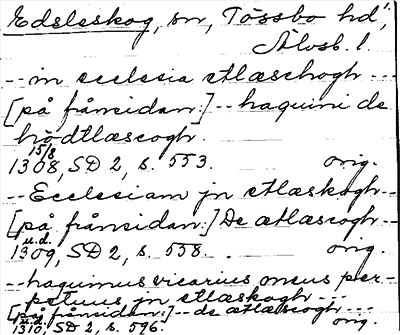 Edsleskog, sn, Tössbo hd,
Älvsb. l.
-- in ecclesia etlæschogh ---
[på frånsidan:] -- haquini de
hödtlæscogh.
15/8
1308, SD 2, s. 553. orig.
-- Ecclesiam jn etlæskogh --
[på frånsidan:] De ætlæscogh --
u.d.
1309, SD 2, s. 558. orig.
-- haquinus vicarius meus per-
petuus jn etlæskogh ---
[på frånsidan:] -- de ætlæscogh ---
u.d.
1310, SD 2, s. 596. orig.